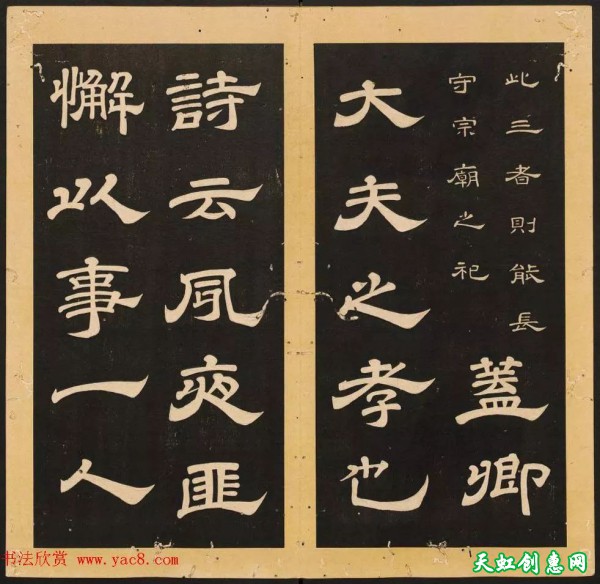 此三者則能長
守宗廟之祀
蓋卿
大夫之孝也
詩云夙夜匪
懈以事一人
书法欣赏 www.yac8.com
天虹创惠网